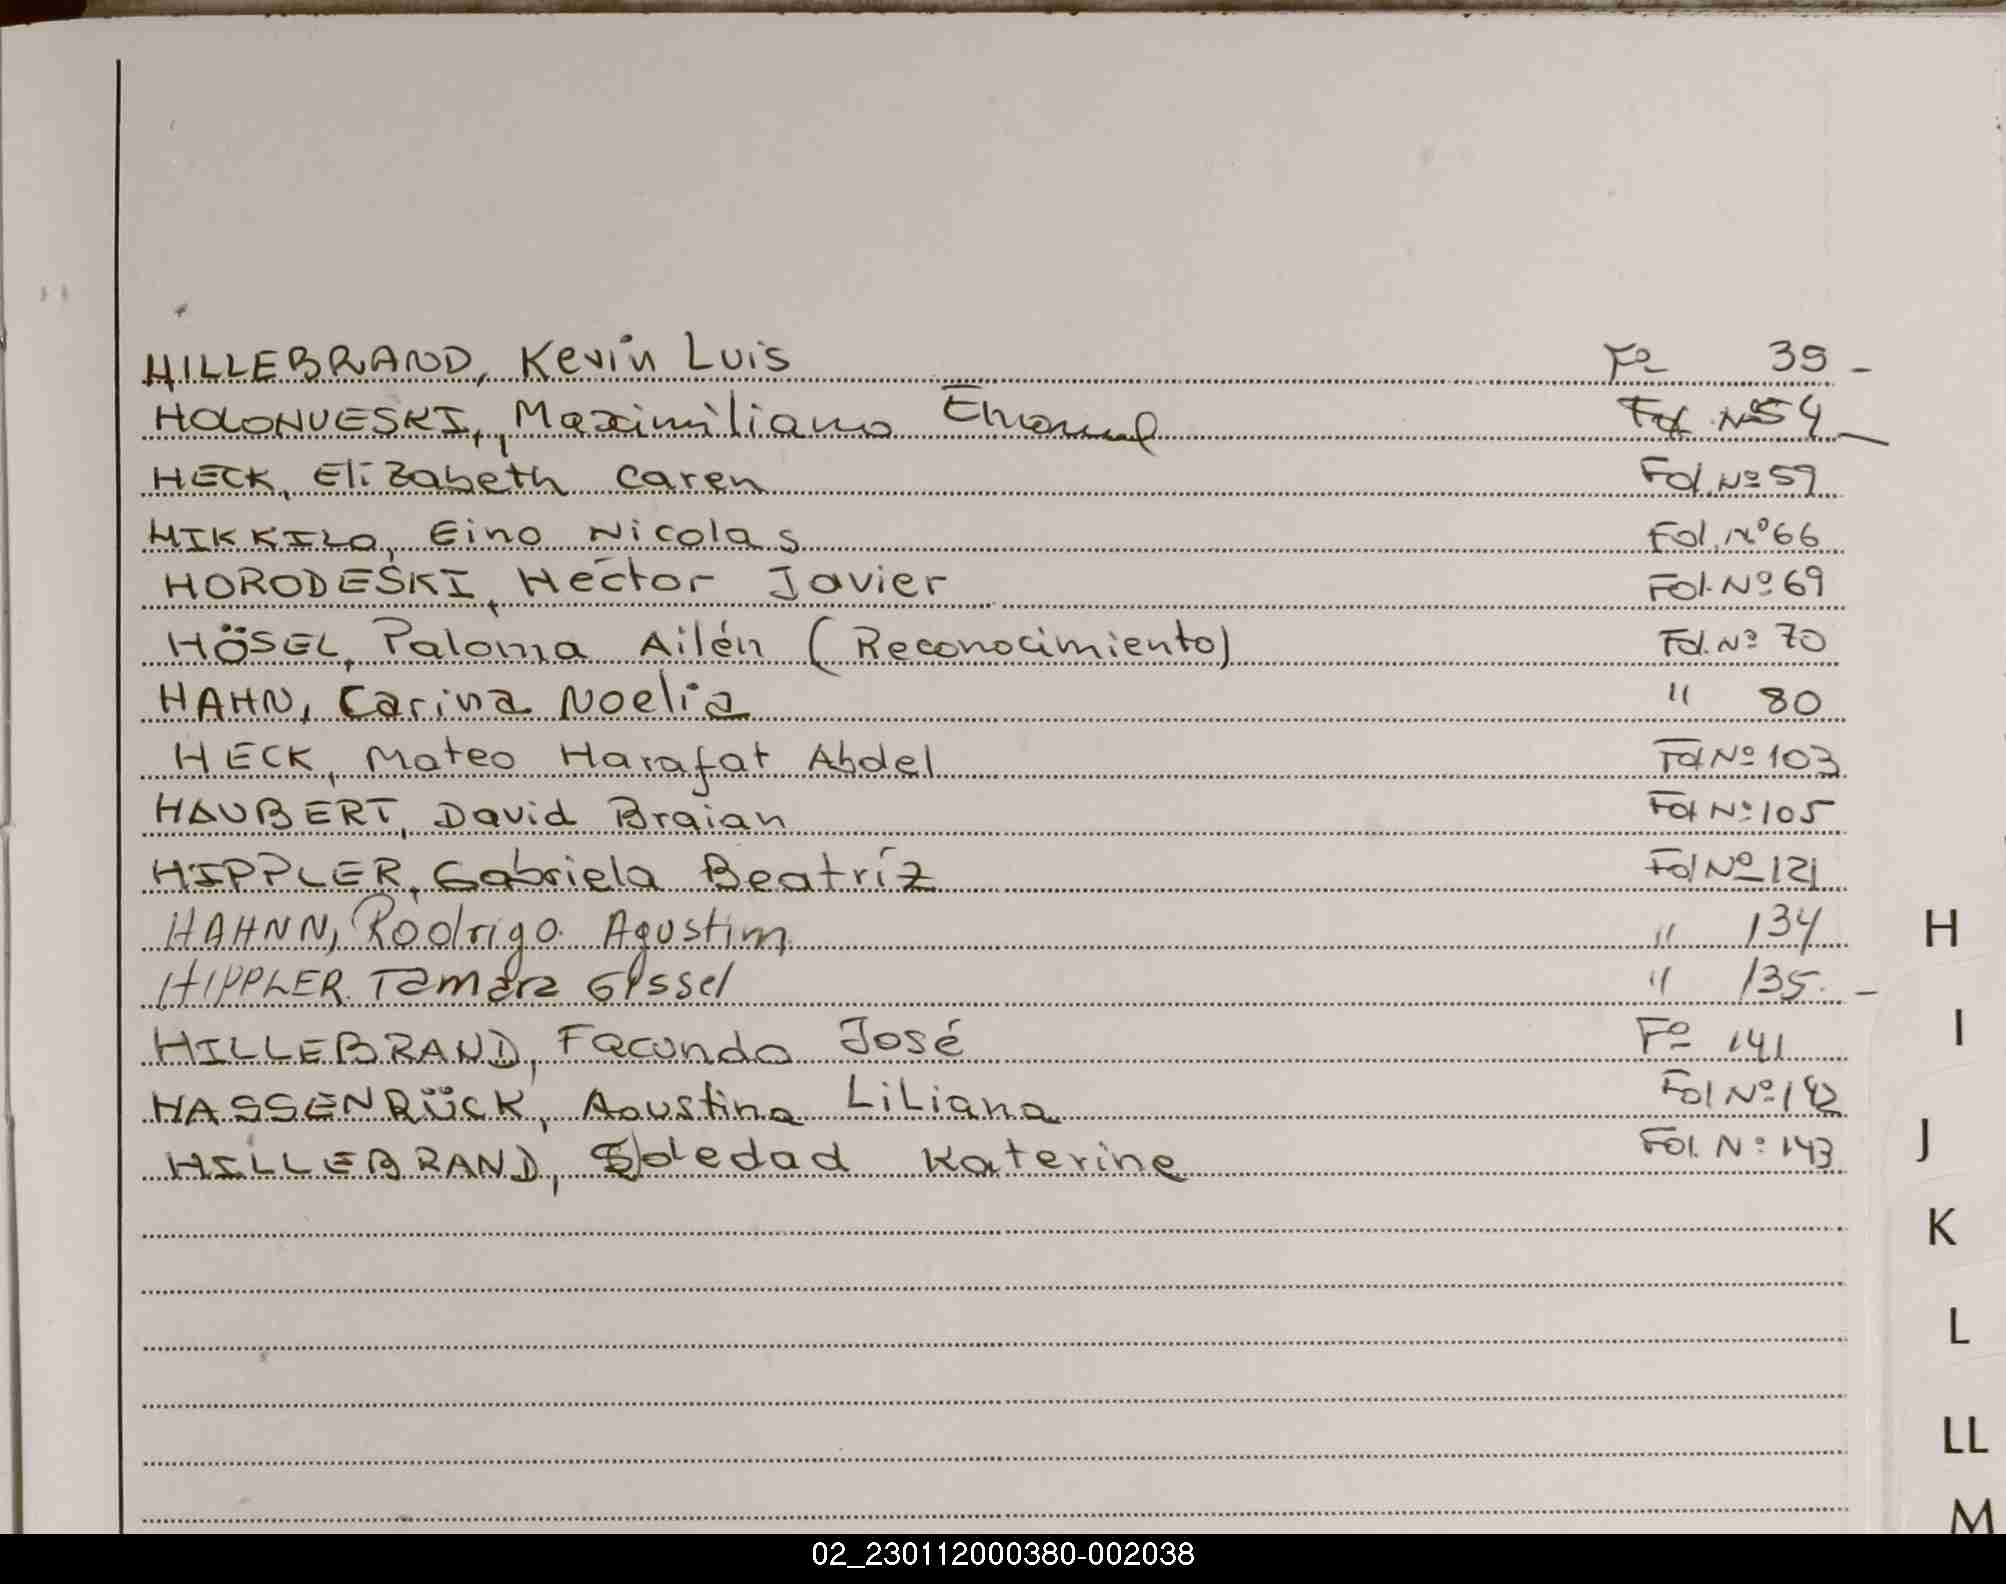 HILLEBRAND, Kevin Luis Fº 39 -
HOLONUESKI, Maximiliano Emanuel Fol. Nº 54 -
HECK, Elizabeth Caren Fol. Nº 59
HIKKILO, Eino Nicolas Fol. Nº 66
HORODESKI, Hector Javier Fol. Nº 69
HÖSEL, Paloma Ailén (Reconocimiento) Fol. Nº 70
HAHN, Carina Noelia " 80
HECK, Mateo Harafat Abdel Fol Nº 103
HAUBERT, David Braian Fol Nº 105
HIPPLER, Gabriela Beatríz Fol Nº 121
HAHNN, Rodrigo Agustim " 134
HIPPLER Tamara Gissel " 135. -
HILLEBRAND, Facundo José Fº 141
HASSENRÜCK, Agustina Liliana Fol Nº 142
HILLEBRAND, Soledad Katerine Fol. Nº 143
H
I
J
K
L
LL
M
02_230112000380-002038